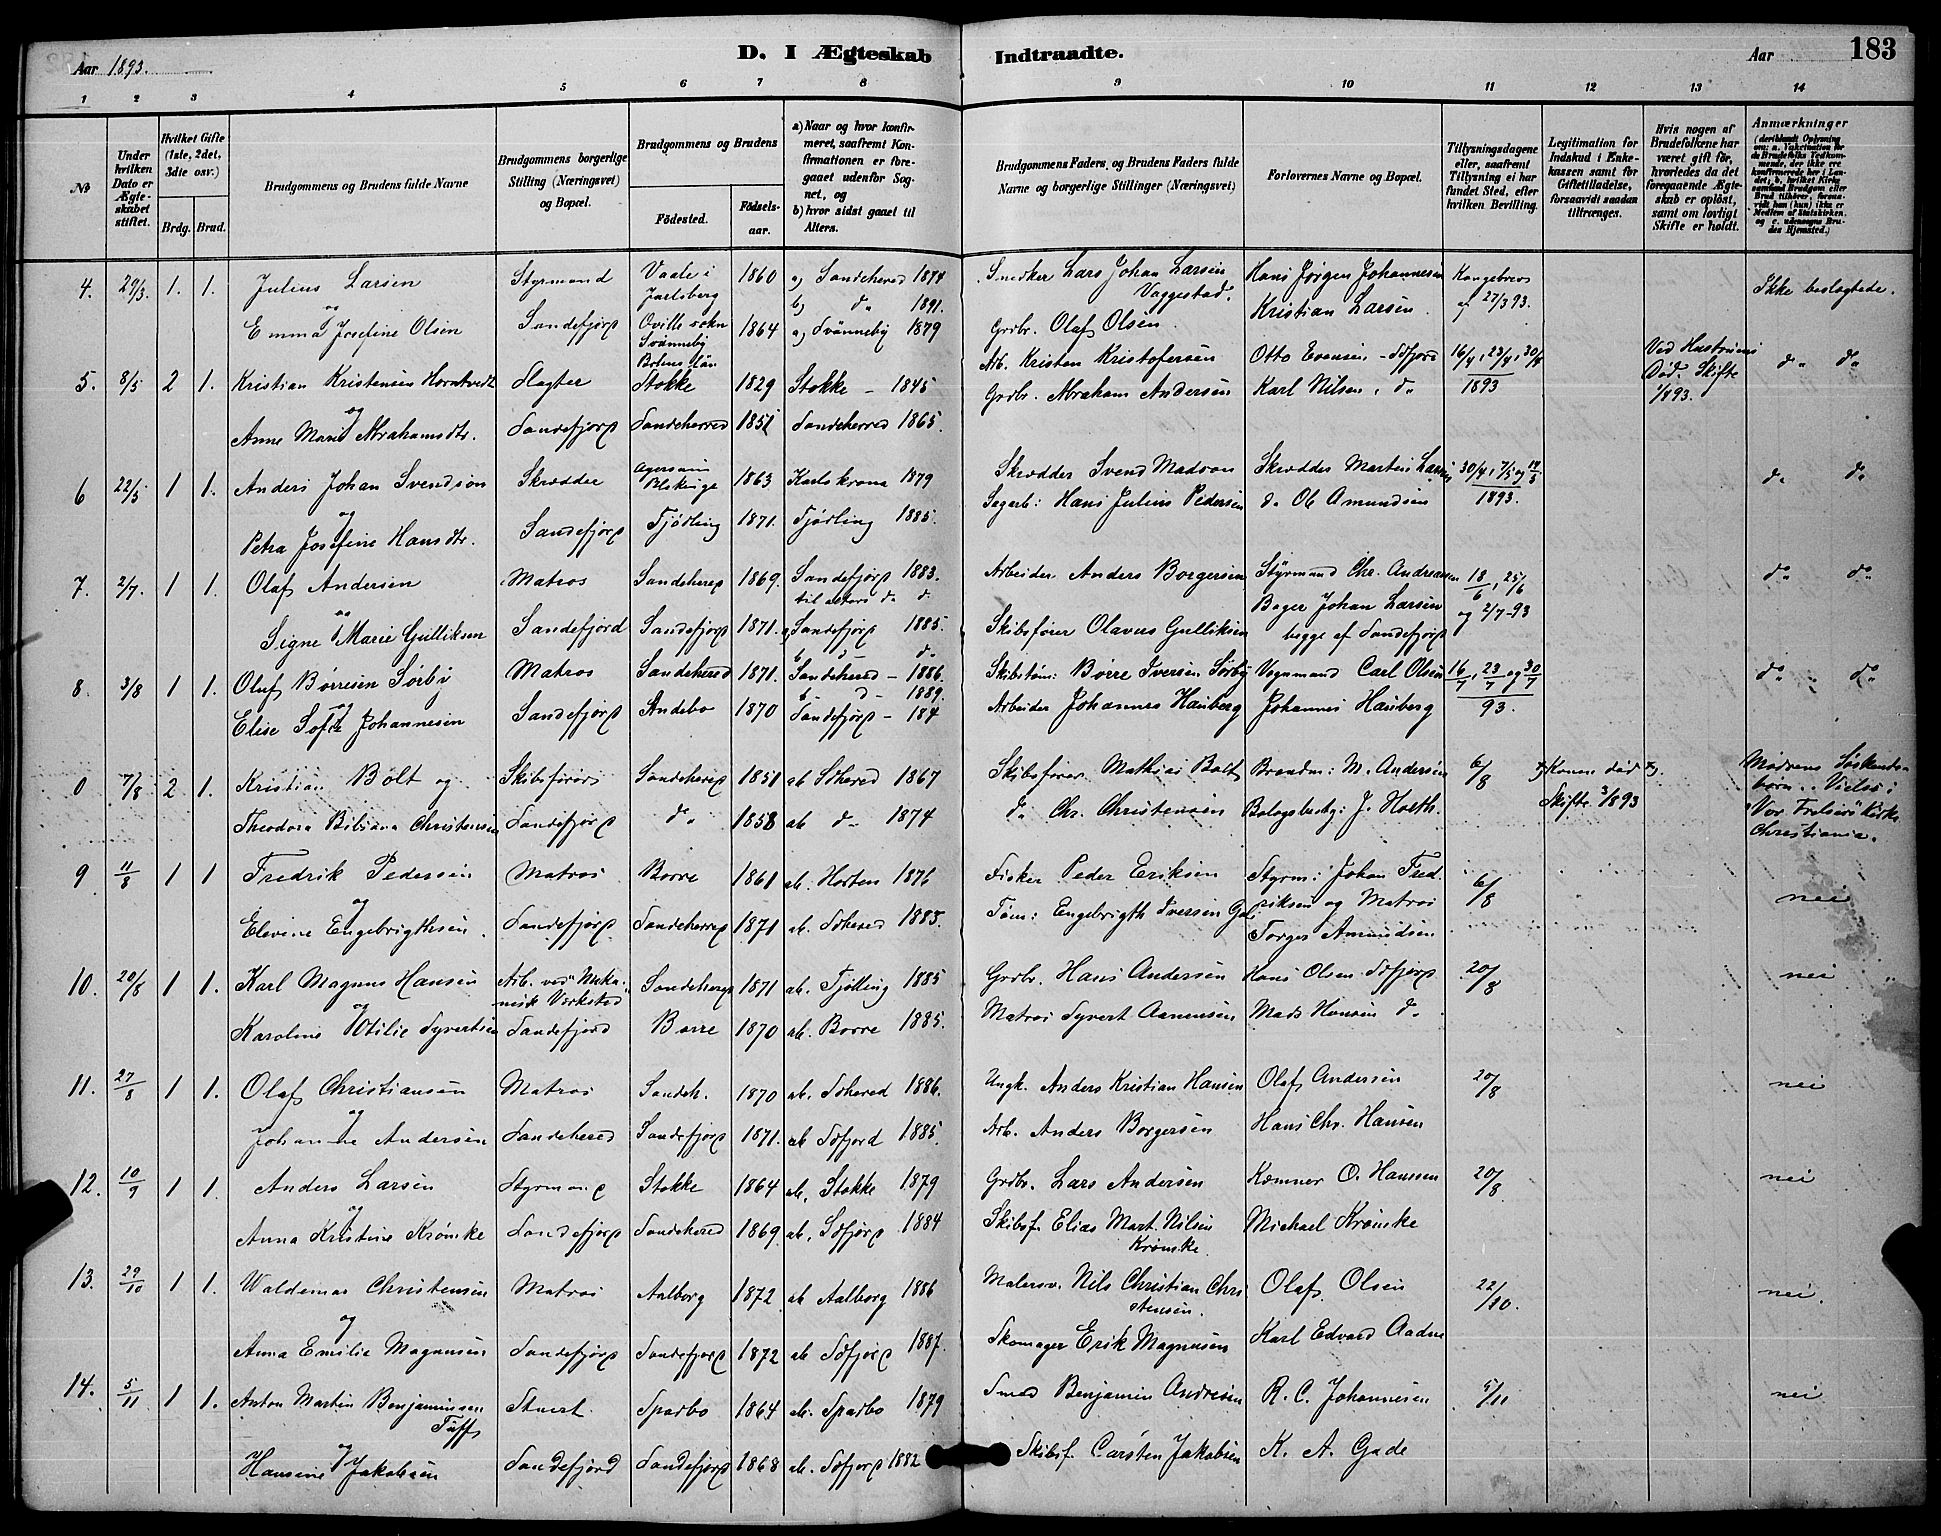 Aar 1893.
D. I Ægteskab Indtraadte.
Aar 183
1 2 3 4 5 6 7 8 9 10 11 12 13 14
No
Under hvilken Dato er Ægteskabet stiftet.
Hvilket Gifte (1ste, 2det, 3die osv.)
Brdg. Brud.
Brudgommens og Brudens fulde Navne
Brudgommens borgerlige Stilling (Næringsvei) og Bopæl.
Brudgommens og Brudens
Födested. Födselsaar.
a) Naar og hvor konfirmeret, saafremt Konfirmationen er foregaaet udenfor Sognet, og
b) hvor sidst gaaet til Alters.
Brudgommens Faders, og Brudens Faders fulde Navne og borgerlige Stillinger (Næringsvei)
Forlovernes Navne og Bopæl.
Tillysningsdagene eller, saafremt Tillysning ei har fundet Sted, efter hvilken Bevilling.
Legitimation for Indskud i Enkekassen samt for Giftetilladelse, forsaavidt saadan tiltrænges.
Hvis nogen af Brudefolkene har været gift før, hvorledes da det foregaaende Ægteskab er oplöst, samt om lovligt Skifte er holdt.
Anmærkninger
4. 29/3. 1. 1. Julius Larsen Styrmand Vaale i Jarlsberg 1860 a) Sandeherred 1874 b) do 1891. Snedker Lars Johan Larsen Vaggestad. Hans Jørgen Johannesen Kongebrev af 27/3 93. Ikke beslægtede.
og
Emma Josefine Olsen Sandefjord 1864 a) Svänneby 1879 Grdbr. Olaf Olsen Kristian Larsen
5. 8/5 2 1. Kristian Kristensen Horntvedt Slagter Stokke 1829 Stokke - 1845 Arb. Kristen Kristofersen Otto Evensen - Sdfjord 16/4, 23/4, 30/4 1893 Ved Hustruens Død. Skifte 1/893. do do
og
Anne Marie Abrahamsdtr. Sandefjord Sandeherred 1851 Sandeherred 1865. Grdbr. Abraham Andersen Karl Nilsen, do
6 22/5 1 1. Anders Johan Svendson Skrædder Blekinge 1863 Karlskrona 1879 Skrædder Svend Madson Skrædder Martin Larsen 30/4, 7/5 og 14/5 1893. do do
og
Petra Josefine Hansdtr. Sandefjord Tjødling 1871. Tjødling 1885. Hans Julius Pedersen do Ole Amundsen
7. 2/7. 1 1. Olaf Andersen Matros Sandeherred 1869. Sandefjord 1883. til alters do do Arbeider Anders Borgersen Styrmand Chr. Andreasen 18/6, 25/6 og 2/7-93 do do
og
Signe Marie Gulliksen Sandefjord Sandefjord 1871. a) Sandefjord 1885. Skibsfører Olavus Gulliksen Bager Johan Larsen begge af Sandefjord
8. 3/8 1 1. Oluf Børresen Sørby Matros Sandeherred 1871. Sandeherred - 1886. b - d - 1889. Skibstøm: Børre Iversen Sørby Vognmand Carl Olsen 16/7, 23/7 og 30/7 93. do do
og
Elise Sofie Johannesen Sandefjord Andebo 1870 Sandefjord - 184 Arbeider Johannes Hauberg Johannes Hauberg
0 7/8 2 1. Kristian Bolt og Skibsfører Sandeherred 1851 ab Sdherred 1867 Skibsfører Mathias Bolt Brandm: M. Andersen 6/8 Konen død Skifte 3/893 Mødrene Søskendebørn. Viet i Vor Frelsers Kirke Christiania.
Theodora Bibiana Christensen Sandefjord do 1858 ab do 1874 do Chr. Christensen J. Holth.
9 11/8 1 1 Fredrik Pedersen Matros Borre 1861 ab. Horten 1876 Fisker Peder Eriksen Styrm: Johan Fredriksen og Matros 6/8 nei
og
Elevine Engebrigthsen. Sandefjord Sandeherred 1871 ab. Sdherred 1885. Tøm: Engebrigth Iversen Torger Amundsen
10. 20/8 1 1. Karl Magnus Hansen Arb. ved Mekanisk Værksted Sandeherred 1871 ab. Tjølling 1885 Grdbr. Hans Andersen Hans Olsen Sdfjord 20/8 nei
og
Karoline Otilie Syvertsen Sandefjord Borre 1870 ab. Borre 1885. Matros Syvert Aanensen Mads Hansen do
11. 27/8 1 1. Olaf Christiansen Matros Sandeh. 1870 ab. Sdherred 1886. Ungk. Anders Kristian Hansen Olaf Andersen 20/8 nei
og
Johanne Andersen Sandeherred Sandefjord 1871. ab Sdfjord 1885. Arb. Anders Borgersen Hans Chr. Hansen
12. 10/9 1 1. Anders Larsen Styrmand Stokke 1864 ab, Stokke 1879 Grdbr. Lars Andersen Kemner O. Hansen 20/8. nei
og
Anna Kristine Krønke Sandefjord Sandeherred 1869. ab, Sdfjord 1884 Skibsf. Elias Mart. Nilsen Krønske. Michael Krønske
13. 29/10 1 1. Waldemar Christensen Matros Aalborg 1872. ab Aalborg 1886 Malersv. Nils Christian Christensen. Olaf Olsen 22/10. nei.
og
Anna Emilie Magnusen Sandefjord Sandefjord 1872 ab Sdfjord 1887. Skomager Erik Magnusen Karl Edvard Aadne
14. 5/11 1 1. Anton Martin Benjaminsen Tuff Stuert. Sparbo 1864 ab. Sparbo 1879 Smed Benjamin Andresen R. C. Johannesen 5/11 nei
og
Hansine Jakobsen Sandefjord Sandefjord 1868 ab. Sdfjord 1882 Skibsf. Carsten Jakobsen K. A. Gade